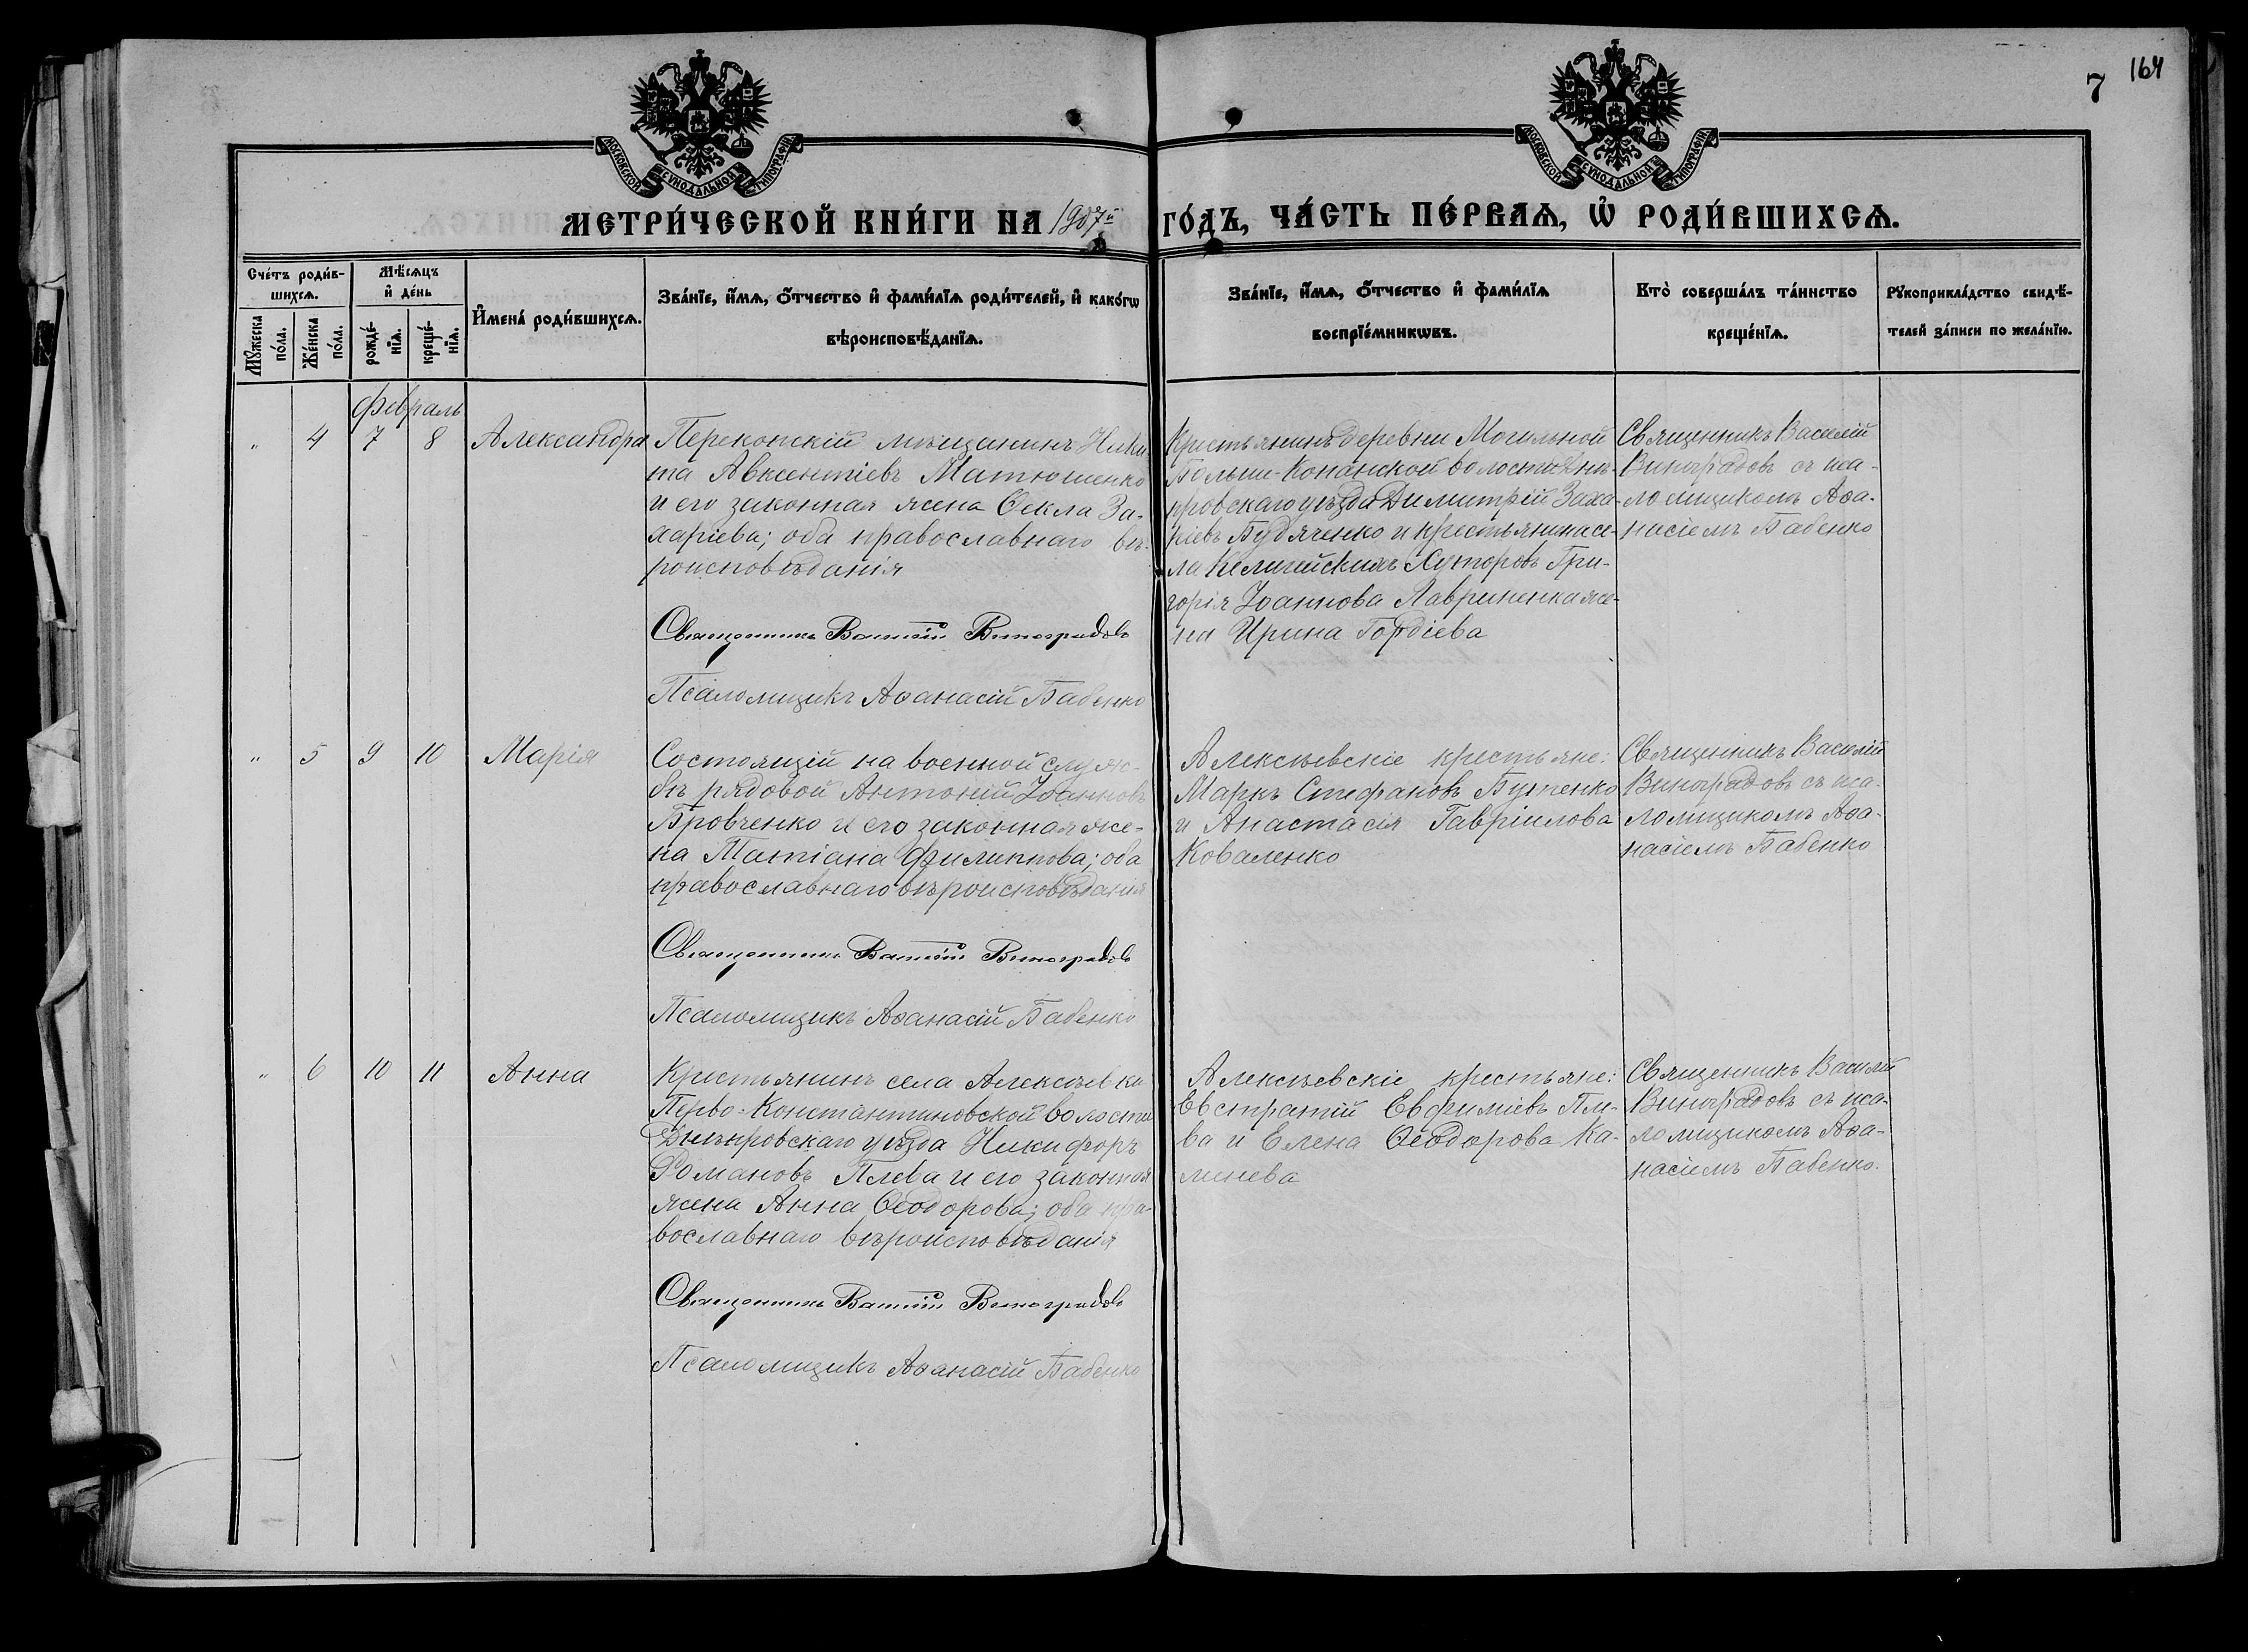 7 164
МОСКОВСКОЙ СѴНОДАЛЬНОЙ ТИПОГРАФІИ
МОСКОВСКОЙ СѴНОДАЛЬНОЙ ТИПОГРАФІИ
МЕТРИ́ЧЕСКОЙ КНИ́ГИ НА 1907й ГО́ДЪ, ЧА́СТЬ ПЕ́РВАѦ, Ѡ҆ РОДИ́ВШИХСѦ.
Сче́тъ роди́в-
шихсѧ.
Мꙋ́жеска
по́ла.
Же́нска
по́ла.
Мѣ́сѧцъ
и҆ де́нь
рожде́-
нїѧ.
креще́-
нїѧ.
И҆мена̀ роди́вшихсѧ.
Зва́нїе, и҆́мѧ, ѻ҆́тчество и҆ фами́лїѧ роди́телей, и҆ како́гѡ
вѣроисповѣ́данїѧ.
Зва́нїе, и҆́мѧ, ѻ҆́тчество и҆ фами́лїѧ
воспрїе́мникѡвъ.
Кто̀ соверша́лъ та́инство
креще́нїѧ.
Рꙋкоприкла́дство свидѣ́-
телей за́писи по жела́нїю.
Февраль
" 4 7 8 Александра
Перекопскій мѣщанинъ Ники
та Авксентіевъ Матюшенко
и его законная жена Ѳекла За-
харіева; оба православнаго вѣ-
роисповѣданія
Священникъ Василій Виноградовъ
Псаломщикъ Аѳанасій Бабенко
Крестьянинъ деревни Могильной
Больше-Копанской волости Днѣ-
провскаго уѣзда Димитрій Заха-
ріевъ Будяченко и крестьянина се-
ла Келигейскихъ Хуторовъ Гри-
горія Іоаннова Лавриненка же-
на Ирина Гордіева
Священникъ Василій
Виноградовъ съ пса-
ломщикомъ Аѳа-
насіемъ Бабенко
" 5 9 10 Марія
Состоящій на военной служ-
бѣ рядовой Антоній Іоанновъ
Бровченко и его законная же-
на Татіана Филиппова; оба
православнаго вѣроисповѣданія
Священникъ Василій Виноградовъ
Псаломщикъ Аѳанасій Бабенко
Алексѣевскіе крестьяне:
Маркъ Стефановъ Бутенко
и Анастасія Гавріилова
Коваленко
Священникъ Василій
Виноградовъ съ пса-
ломщикомъ Аѳа-
насіемъ Бабенко
" 6 10 11 Анна
Крестьянинъ села Алексѣевки
Перво-Константиновской волости
Днѣпровскаго уѣзда Никифоръ
Романовъ Плева и его законная
жена Анна Ѳеодорова; оба пра-
вославнаго вѣроисповѣданія
Священникъ Василій Виноградовъ
Псаломщикъ Аѳанасій Бабенко
Алексѣевскіе крестьяне:
Евстратій Евфиміевъ Пле-
ва и Елена Ѳеодорова Ка-
менева
Священникъ Василій
Виноградовъ съ пса-
ломщикомъ Аѳа-
насіемъ Бабенко.